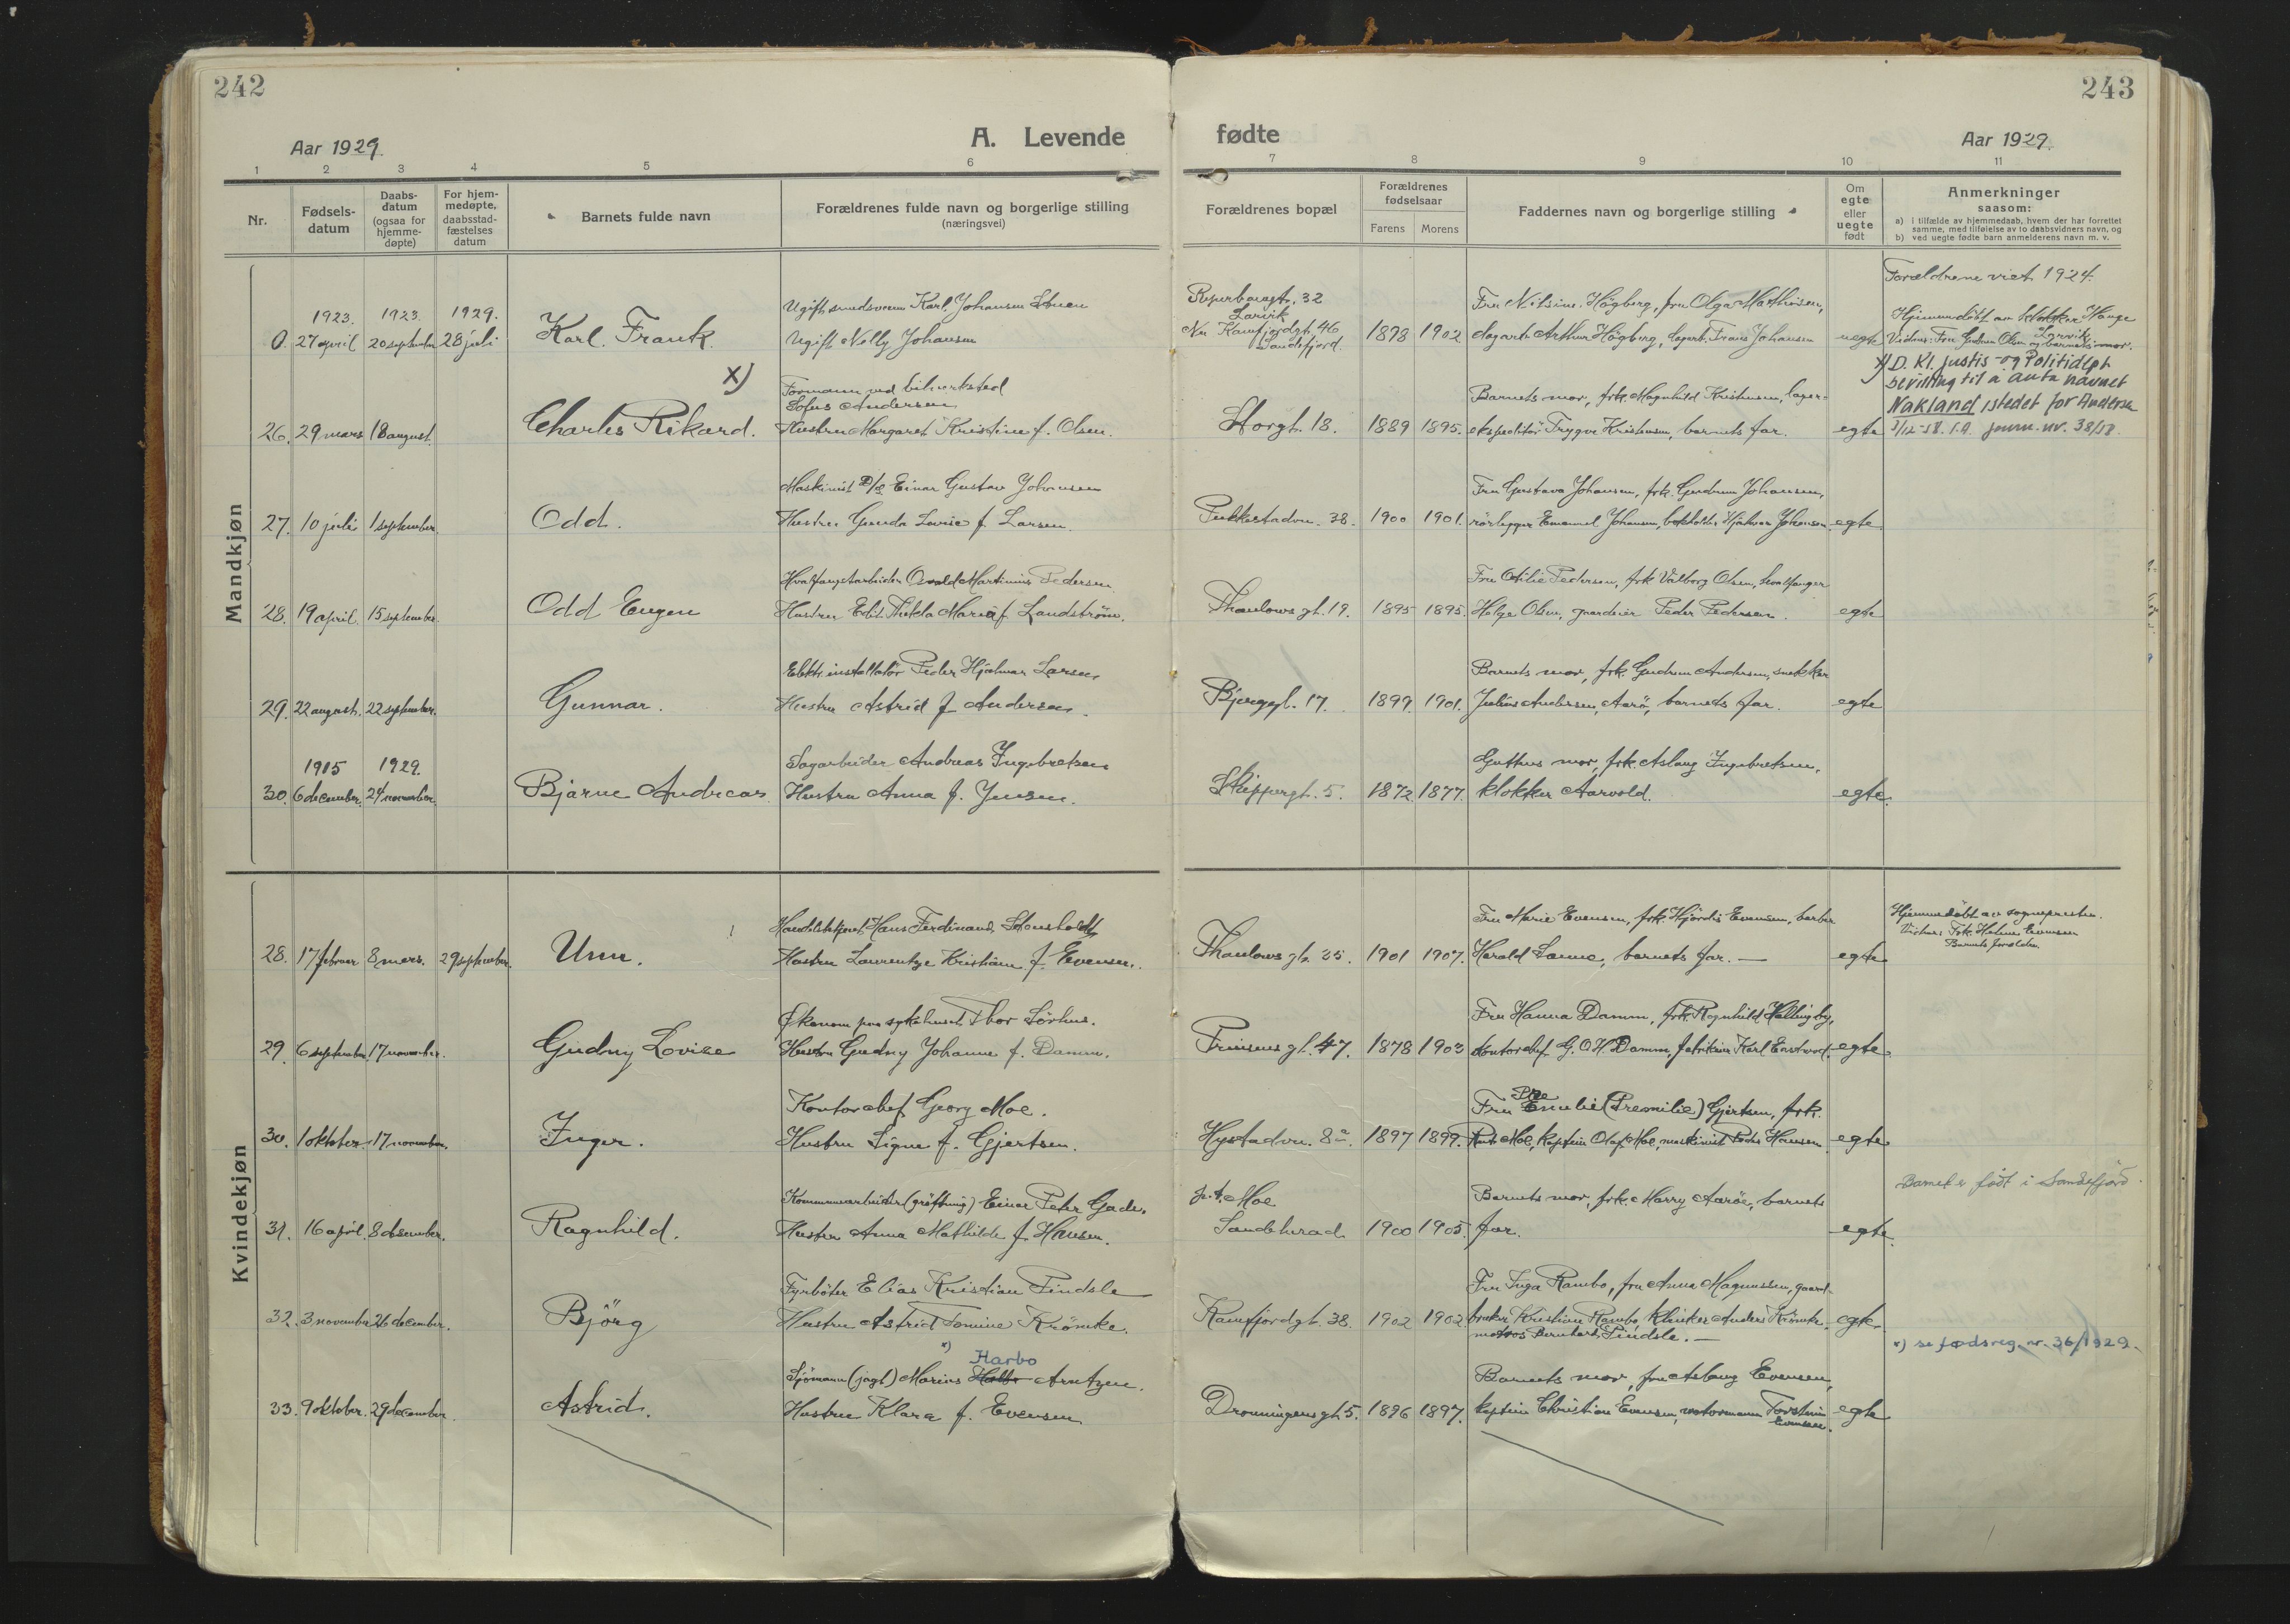 242
Aar 1929.
A. Levende
1 2 3 4 5 6
Nr.
Fødsels-
datum
Daabs-
datum
(ogsaa for
hjemme-
døpte)
For hjem-
medøpte,
daabsstad-
fæstelses
datum
Barnets fulde navn
Forældrenes fulde navn og borgerlige stilling
(næringsvei)
Mandkjøn
1923. 1923 1929.
0. 27 april 20 september 28 juli Karl. Frank.
Ugift smedsvenn Karl Johansen
Ugift Nelly Johansen
X)
26. 29 mars 18 august. Charles Rikard.
Formann ved
Sofus Andersen
Hustru Margaret Kristine f. Olsen.
27. 10 juli 1 september. Odd.
Maskinist D/S Einar Gustav Johansen
Hustru Gunda Lovise f. Larsen.
28. 19 april. 15 september. Odd Eugen
Hvalfangstarbeider Osvald Martinius Pedersen
Hustru Edit Thekla Maria f. Landström.
29. 22 august. 22 september. Gunnar.
Elektr. installatör Peder Hjalmar Larsen
Hustru Astrid f. Andersen.
1915 1929.
30. 6 december. 24 november. Bjarne Andreas.
Sagarbeider Andreas Ingebretsen
Hustru Anna f. Jensen.
Kvindekjøn
28. 17 februar 8 mars. 29 september. Unn.
Hans Ferdinand
Hustru Laurentze Kristiane f. Evensen.
29. 6 september. 17 november. Gudny Lovise
Økonom paa sykehuset Thor Sörhus.
Hustru Gudny Johanne f. Damm.
30. 1 oktober. 17 november. Inger.
Kontorchef Georg Moe.
Hustru Signe f. Gjertsen.
31. 16 april. 8 desember. Ragnhild.
Kommunearbeider (gröftning) Einar Peter Gade.
Hustru Anna Mathilde f. Hansen.
32. 3 november 26 december. Björg
Fyrböter Elias Kristian Pindsle
Hustru Astrid Tomine Krömke.
x) Harbo
33. 9 oktober. 29 december. Astrid.
Sjömann (jagt) Marius Arntzen.
Hustru Klara f. Evensen
243
fødte
Aar 1929.
7 8 9 10 11
Forældrenes bopæl
Forældrenes
fødselsaar
Farens Morens
Faddernes navn og borgerlige stilling
Om
egte
eller
uegte
født
Anmerkninger
saasom:
a) i tilfælde av hjemmedaab, hvem der har forrettet
samme, med tilføielse av to daabsvidners navn, og
b) ved uegte fødte barn anmelderens navn m. v.
Forældrene viet 1924.
32
Larvik
Nu Kamfjordgt. 46
Sandefjord.
1898 1902
Fru Nilsine Högberg, fru Olga Mathisen,
dagarb. Arthur Högberg, dagarb. Frans Johansen
uegte
Hjemmedöbt av klokker Hauge
Larvik
Vidner: Fru Gudrun Olsen og barnets mor.
Storgt. 18. 1889 1895.
Barnets mor, frk. Magnhild Kristensen, lager-
ekspeditör Trygve Kristensen, barnets far.
egte
x) D. Kl. Justis- og Politidept
bevilling til å anta navnet
Nakland istedet for Andersen
3/12-58. journ. nr. 38/58.
Pukkestadvn. 38. 1900 1901.
Fru Gustava Johansen, frk. Gudrun Johansen,
rörlegger Emanuel Johansen, bokholder Hjalmar Johansen
egte
Thaulows gt. 19. 1895 1895.
Fru Otilie Pedersen, frk. Valborg Olsen, hvalfanger
Helge Olsen, gaardeier Peder Pedersen.
egte
Bjerggt. 17. 1899. 1901.
Barnets mor, frk. Gudrun Andersen, snekker
Julius Andersen, Aarö, barnets far.
egte
Skippergt. 5. 1872 1877.
Guttens mor, frk. Aslaug Ingebretsen,
klokker Aarvold.
egte.
Thaulows gt. 25. 1901 1907.
Fru Marie Evensen, frk. Hjördis Evensen, barber
Harald Sanne, barnets far. —
egte
Hjemmedöbt av sognepresten.
Vidner: Frk. Evensen
Barnets forældre.
Prinsens gt. 47. 1878 1903
Fru Hanna Damm, frk. Ragnhild Hallingby,
kontorchef G. O. H. Damm, Karl
egte.
Hystadvn. 8a 1897 1899.
Pre
Fru Emelie (Preemilie) Gjertsen, frk.
Moe, kaptein Olaf Moe, maskinist Peder Hansen
egte
p.t. Moe
Sandeherad 1900 1905.
Barnets mor, frk. Marry Aaröe, barnets
far.
egte.
Barnet er født i Sandefjord.
Kamfjordgt. 38. 1902 1902
Fru Inga Rambo, fru Anna Magnussen, gaard-
bruker Kristian Rambo, Anders Krömke,
matros Bernhard Pindsle. —
egte.
x) se fødsreg. nr. 36/1929.
Dronningens gt. 5. 1896 1897.
Barnets mor, fru Aslaug Evensen,
kaptein Christian Evensen, Torstein
Evensen.
egte